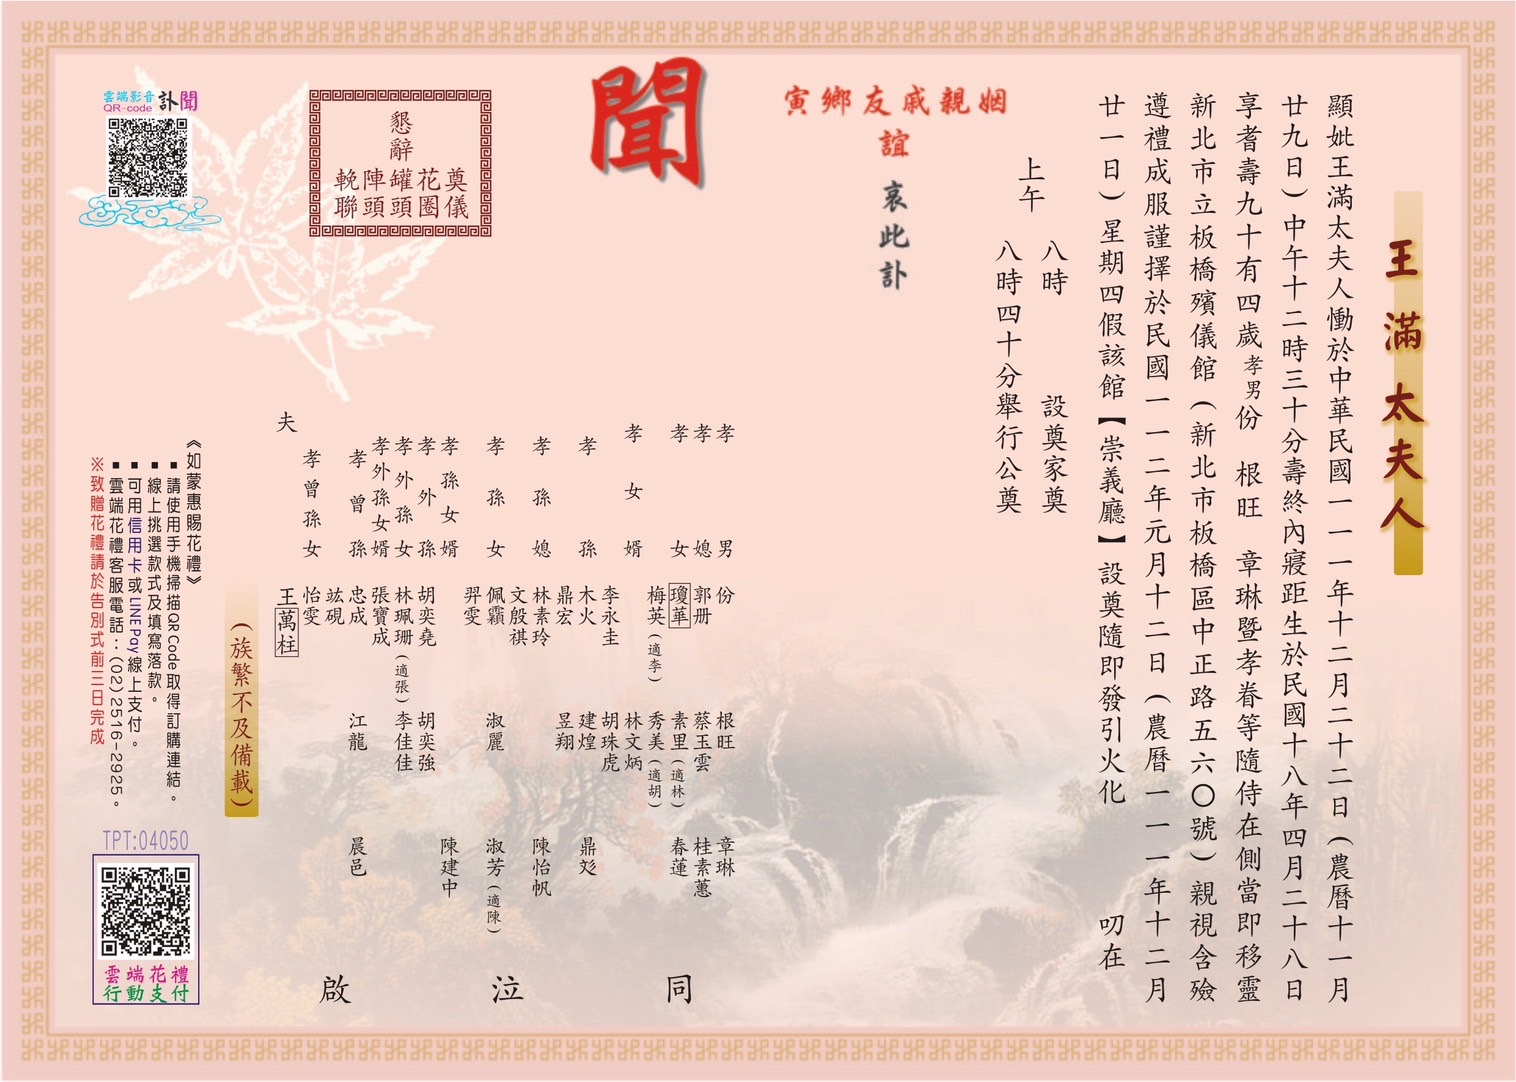 王滿太夫人
顯妣王滿太夫人慟於中華民國一一一年十二月二十二日(農曆十一月
廿九日)中午十二時三十分壽終內寢距生於民國十八年四月二十八日
享耆壽九十有四歲孝男份 根旺 章琳暨孝眷等隨侍在側當即移靈
新北市立板橋殯儀館(新北市板橋區中正路五六〇號)親視含殮
遵禮成服謹擇於民國一一二年元月十二日(農曆一一一年十二月
廿一日)星期四假該館【崇義廳】設奠隨即發引火化 叨在
上午
八時 設奠家奠
八時四十分舉行公奠
寅鄉友戚親姻
誼
哀此訃
聞
孝男 份 根旺 章琳
孝媳 郭册 蔡玉雲 桂素蕙
孝女 瓊華 素里(適林) 春蓮
梅英(適李) 秀美(適胡)
孝女婿 林文炳
李永圭 胡珠虎
孝孫 木火 建煌 鼎烎
鼎宏 昱翔
孝孫媳 林素玲 陳怡帆
文殷祺
孝孫女 佩霸 淑麗 淑芳(適陳)
羿雯
孝孫女婿 陳建中
孝外孫 胡奕堯 胡奕強
孝外孫女 林珮珊(適張) 李佳佳
孝外孫女婿 張寶成
孝曾孫 忠成 江龍 晨邑
竑硯
孝曾孫女 怡雯
夫 王萬柱
同泣啟
(族繁不及備載)
懇辭
奠儀
花圈
罐頭
陣頭
輓聯
雲端影音
QR-code
訃聞
《如蒙惠賜花禮》
▪ 請使用手機掃描QR Code取得訂購連結。
▪ 線上挑選款式及填寫落款。
▪ 可用信用卡或LINE Pay線上支付。
▪ 雲端花禮客服電話:(02)2516-2925。
※致贈花禮請於告別式前三日完成
TPT:04050
雲端花禮
行動支付